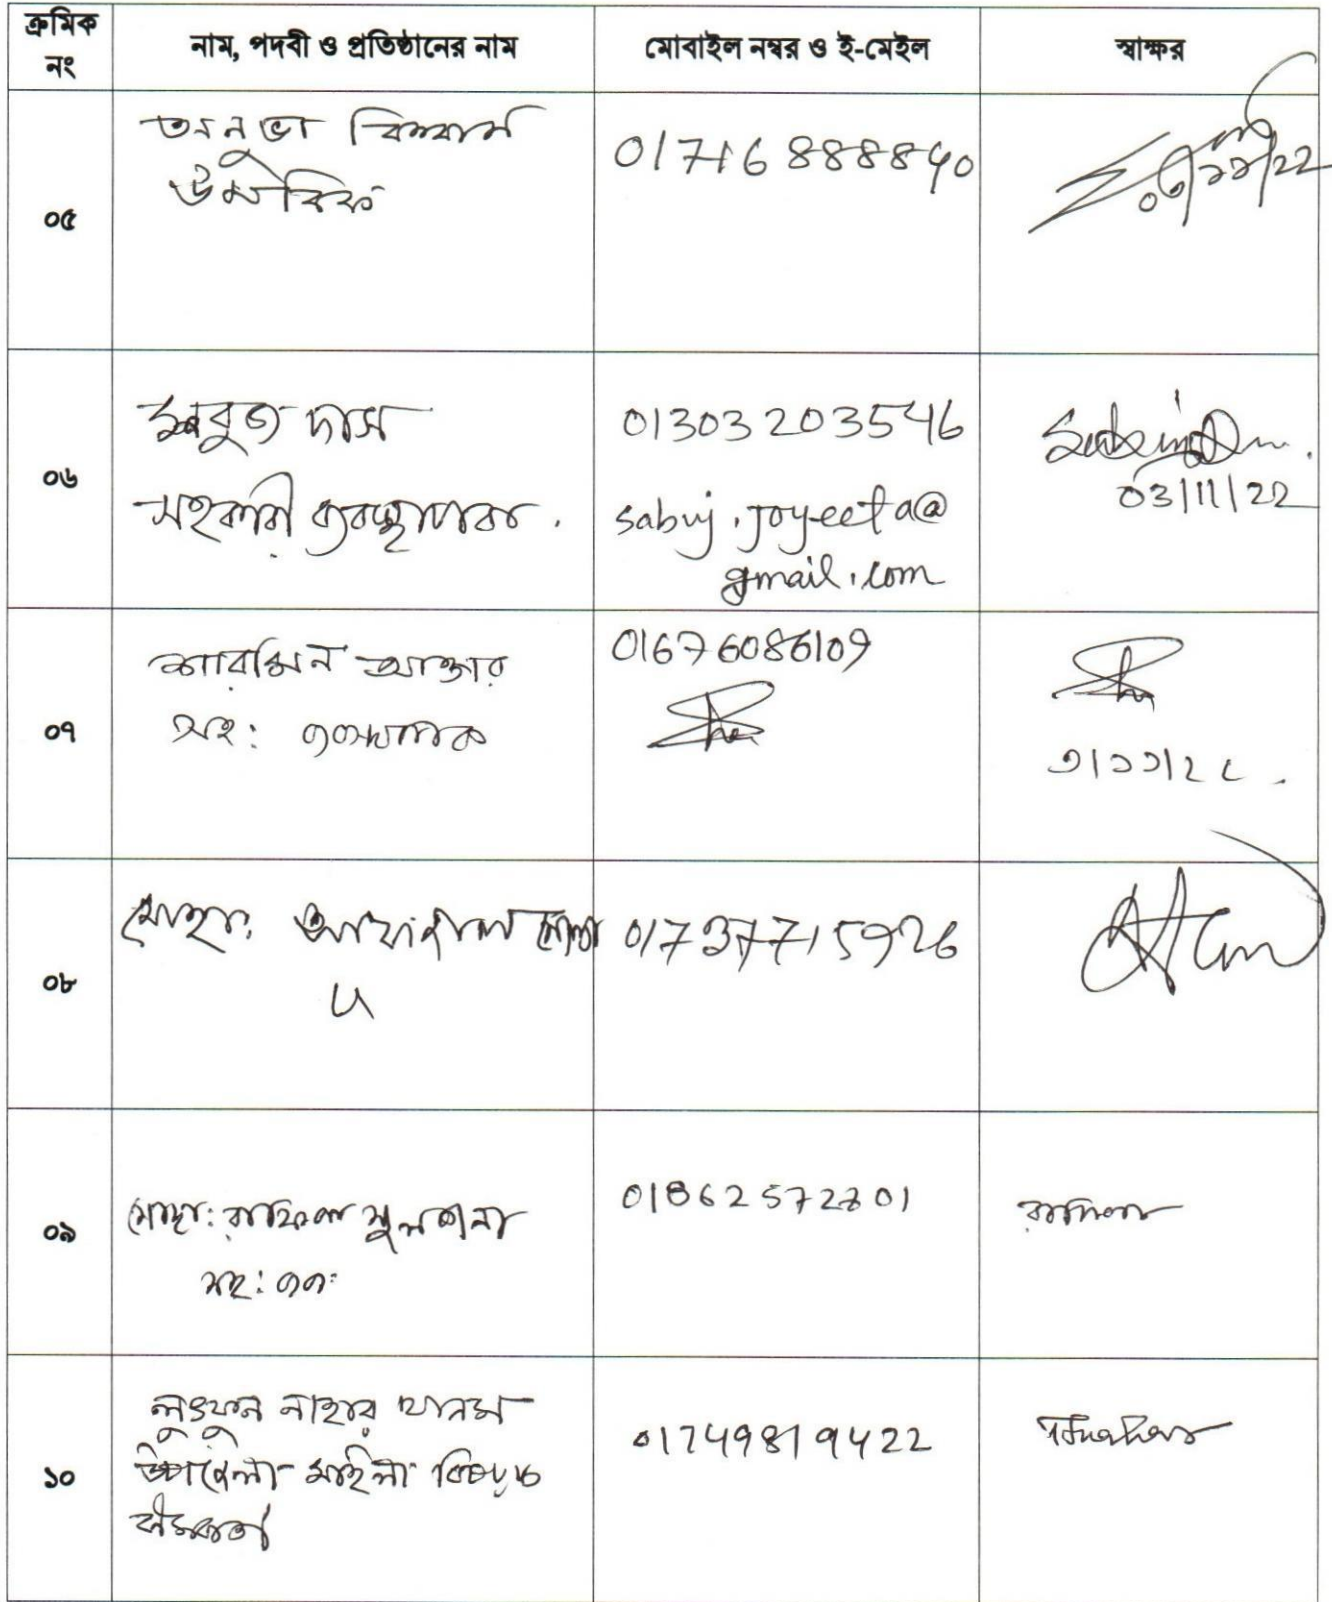 ক্রমিক নং
নাম, পদবী ও প্রতিষ্ঠানের নাম
মোবাইল নম্বর ও ই-মেইল
স্বাক্ষর
০৫
তনুভা বিশ্বাস
01716888840
০৩/১১/22
০৬
সবুজ দাস
সহকারী ব্যবস্থাপক.
01303203546
sabuj.joyeeta@
gmail.com
03/11/22
০৭
শারমিন আক্তার
সহ: ব্যবস্থাপক
01676086109
৩/১১/২২.
০৮
মোছা:
01737715926
০৯
মোছা: রাফিলা সুলতানা
সহ: ব্যব:
10
১০
লুৎফুন নাহার খানম
উপজেলা মহিলা বিষয়ক
কর্মকর্তা
01749819422